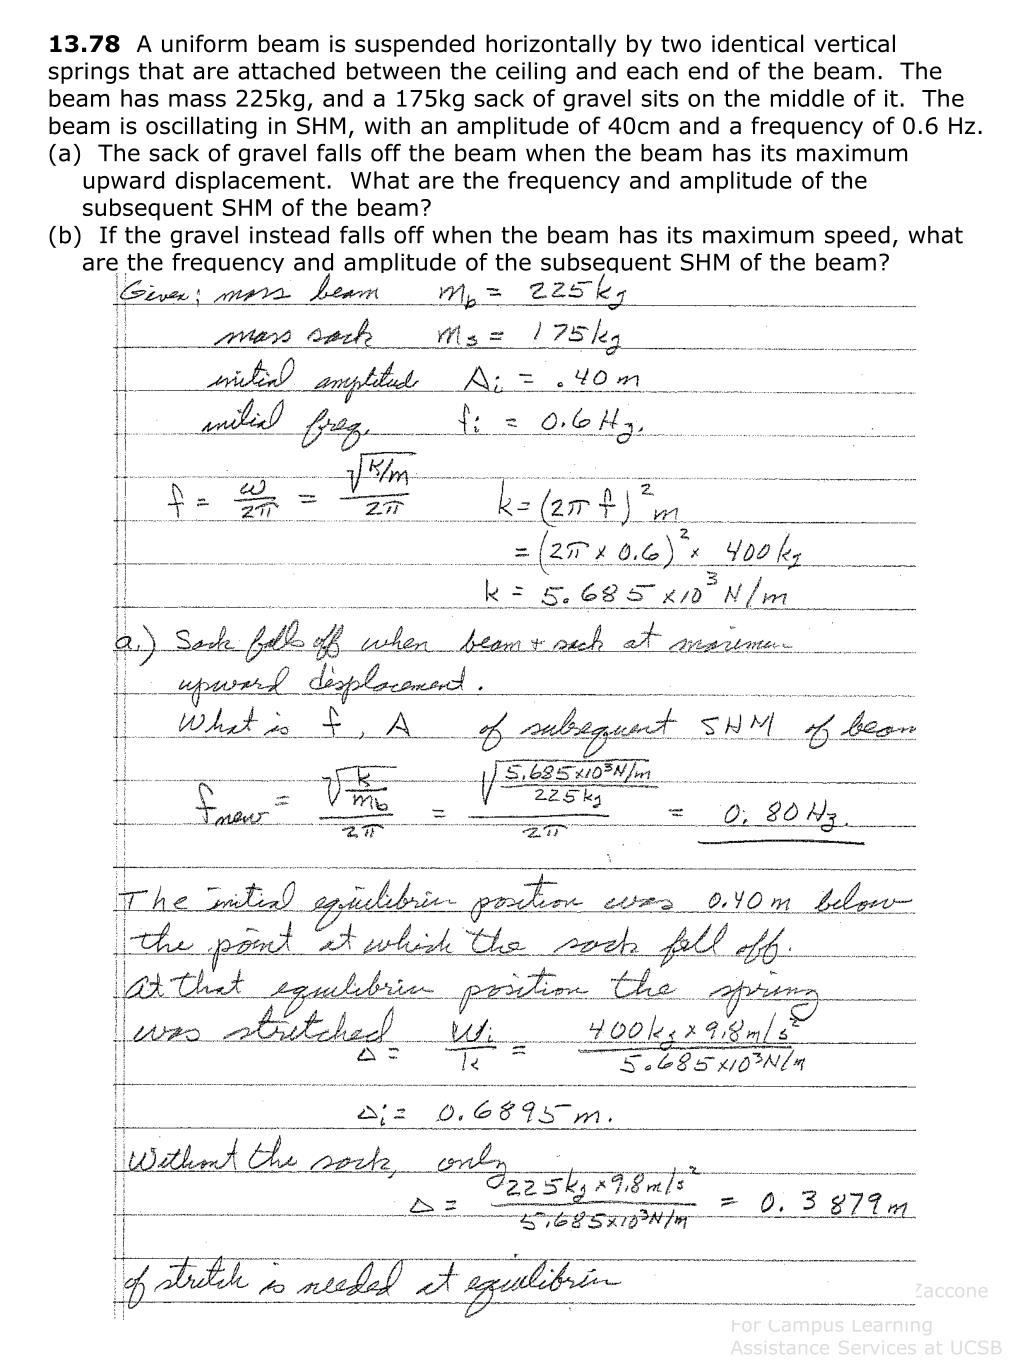 13.78 A uniform beam is suspended horizontally by two identical vertical
springs that are attached between the ceiling and each end of the beam. The
beam has mass 225kg, and a 175kg sack of gravel sits on the middle of it. The
beam is oscillating in SHM, with an amplitude of 40cm and a frequency of 0.6 Hz.
(a) The sack of gravel falls off the beam when the beam has its maximum
upward displacement. What are the frequency and amplitude of the
subsequent SHM of the beam?
(b) If the gravel instead falls off when the beam has its maximum speed, what
are the frequency and amplitude of the subsequent SHM of the beam?
Given: mass beam m_b = 225kg
mass sack m_s = 175kg
initial amplitude A_i = .40 m
initial freq. f_i = 0.6 Hz.
f = ω/2π = √(K/m)/2π k = (2π f)² m
= (2π × 0.6)² × 400 kg
k = 5.685 × 10³ N/m
a.) Sack falls off when beam + sack at maximum
upward displacement.
What is f, A of subsequent SHM of beam
f_new = √(k/m_b)/2π = √(5.685×10³N/m/225kg)/2π = 0.80 Hz.
The initial equilibrium position was 0.40 m below
the point at which the sack fell off.
At that equilibrium position the spring
was stretched Δ = W_i/k = 400kg × 9.8m/s²/5.685×10³N/m
Δ_i = 0.6895 m.
Without the sack, only
Δ = 225kg × 9.8 m/s²/5.685×10³N/m = 0.3879 m
of stretch is needed at equilibrium
Zaccone
For Campus Learning
Assistance Services at UCSB